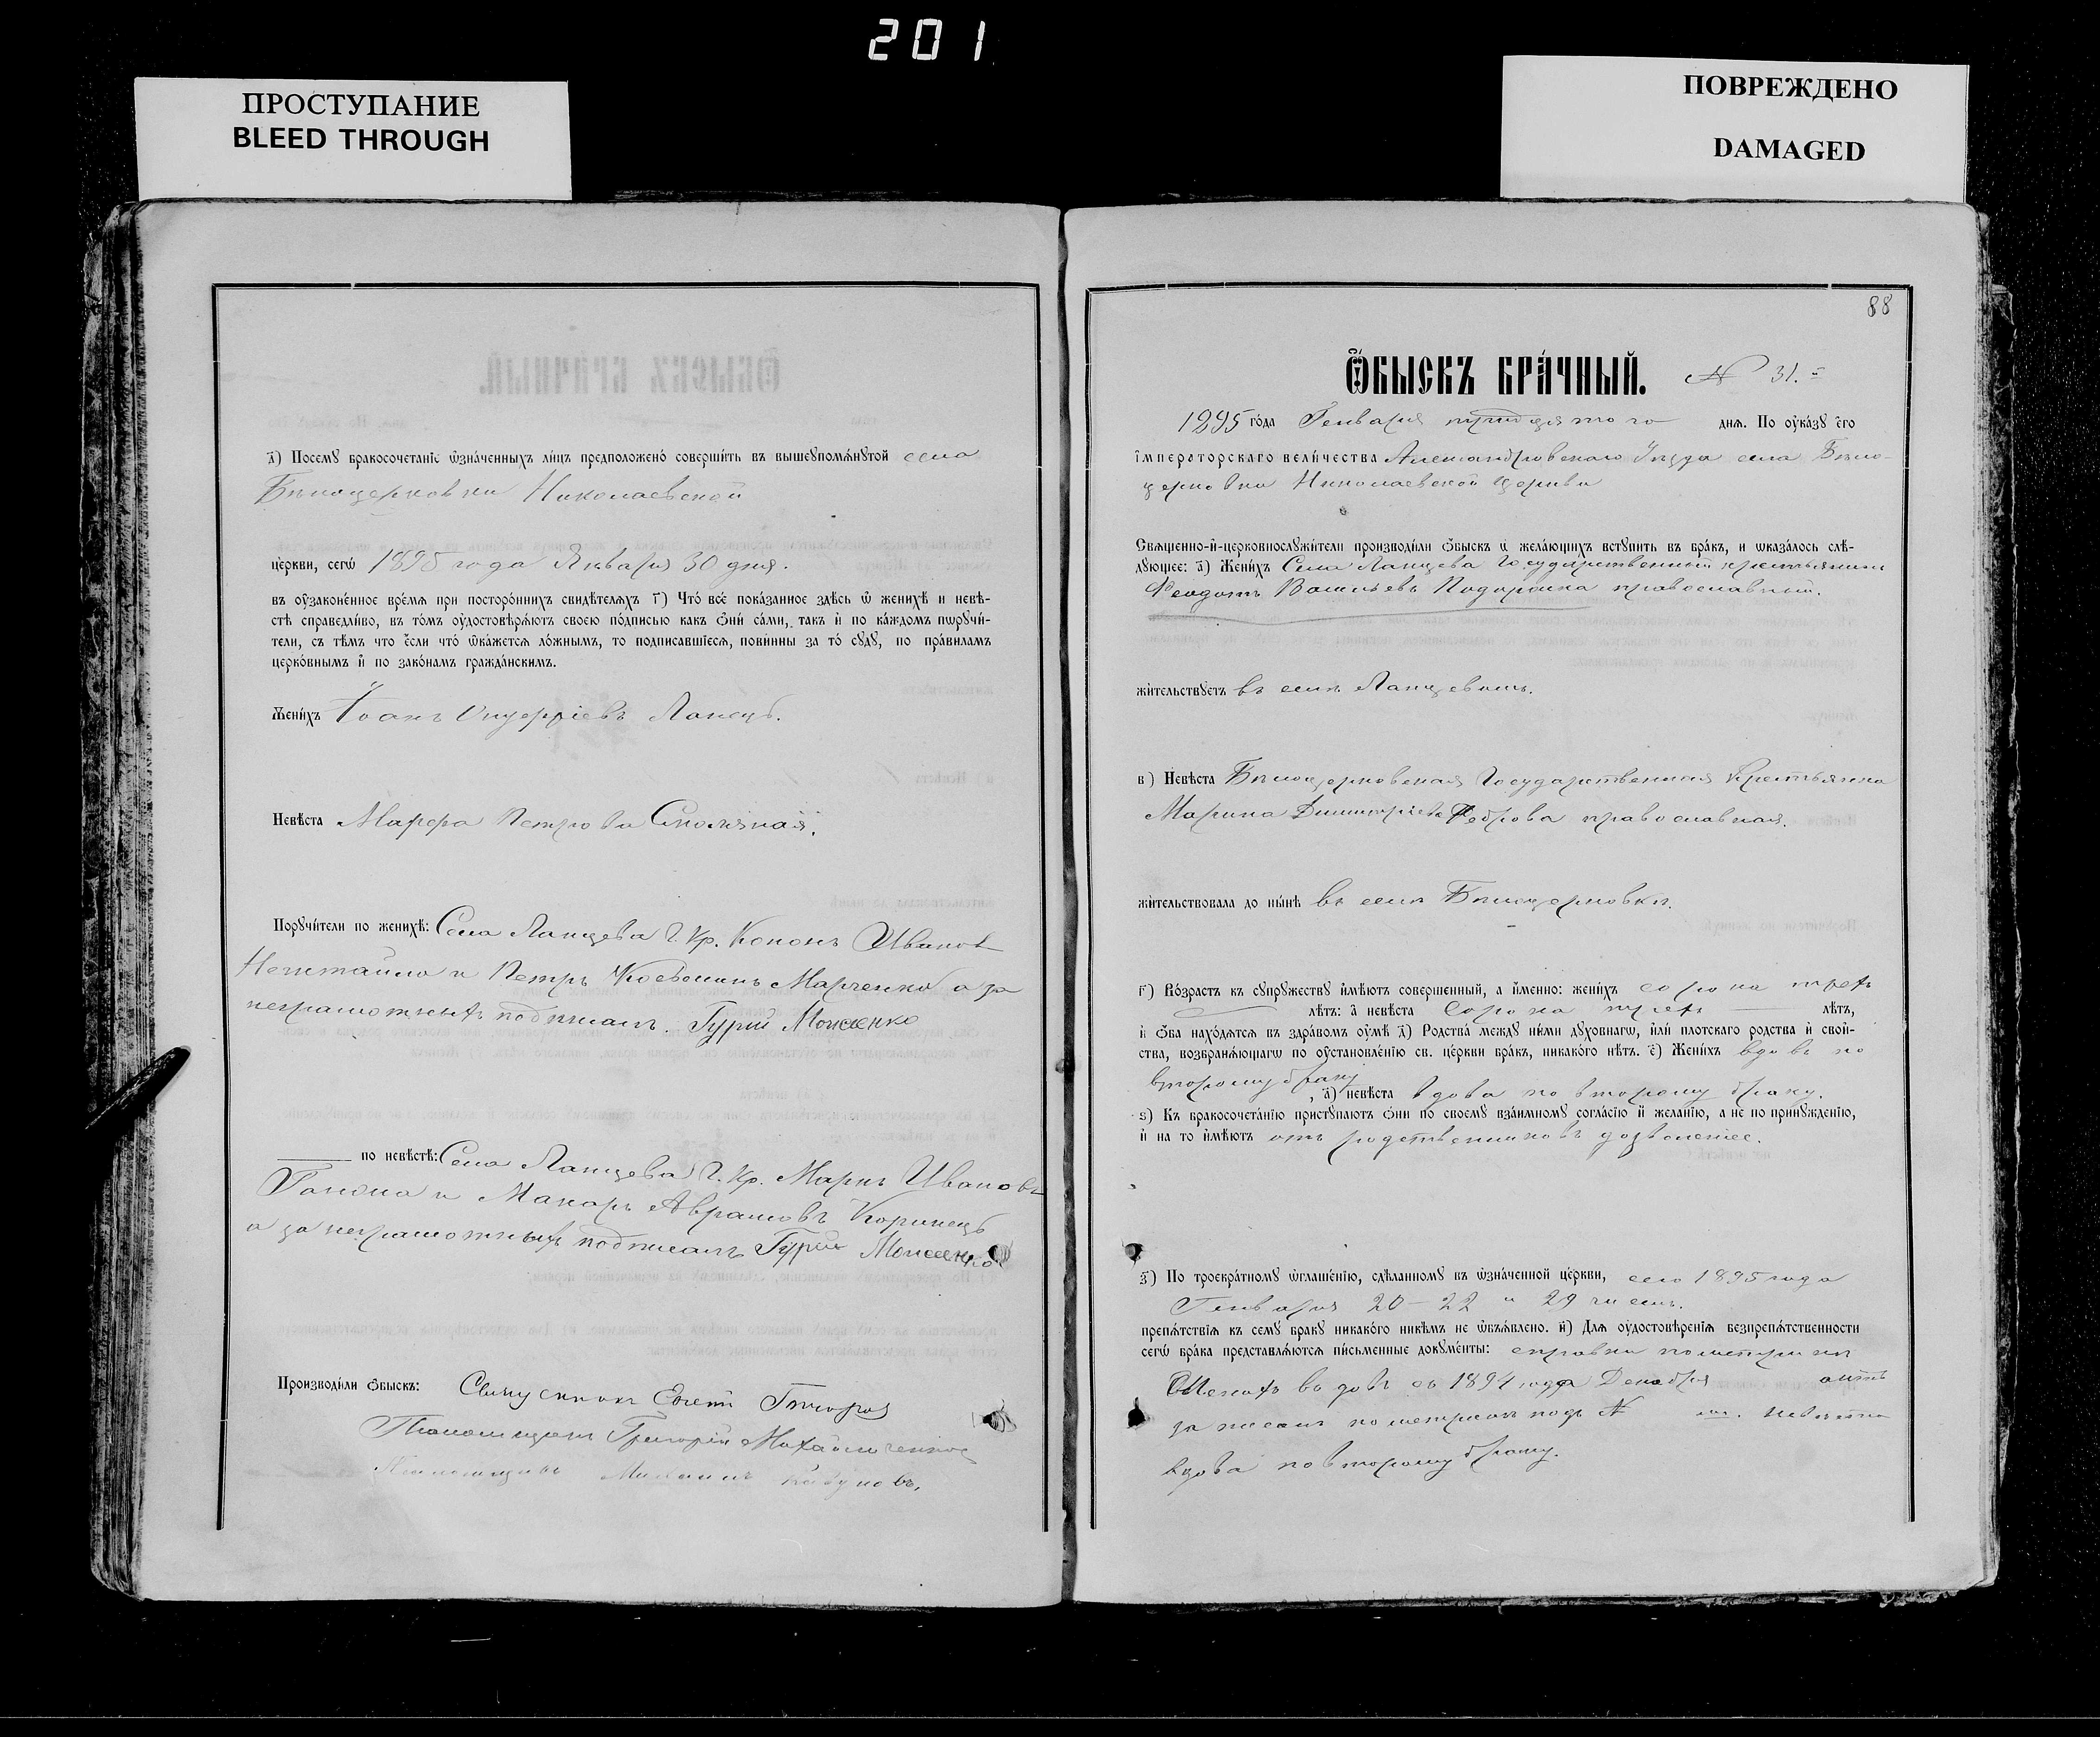 201
ПРОСТУПАНИЕ
BLEED THROUGH
ПОВРЕЖДЕНО
DAMAGED
з) Посемꙋ бракосочетанїе ѡзна́ченныхъ ли́цъ предположено́ соверши́ть въ вышеꙋпомѧ́нꙋтой села
Бѣлоцерковки Николаевской
це́ркви, сегѡ̀ 1895 года Января 30 дня.
въ ᲂу҆зако́ненное вре́мѧ при посторо́ннихъ свидѣ́телѧхъ г҃) Что̀ все́ пока́занное здѣ́сь ѡ҆ женихѣ̀ и невѣ́-
стѣ справедли́во, въ то́мъ ᲂу҆достовѣрѧ́ютъ своею по́дписью какъ ѻ҆ни́ са́ми, та́къ и҆ по ка́ждомъ порꙋчи́-
тели, съ тѣ́мъ что є҆́сли что̀ ѡ҆ка́жетсѧ ло́жнымъ, то подписавшїесѧ, пови́нны за то́ сꙋдꙋ̀, по пра́виламъ
церко́внымъ и҆ по зако́намъ гражда́нскимъ.
Жени́хъ Іоанъ Ануфріевъ Ланецъ.
Невѣ́ста Марфа Петрова Смоляная.
Порꙋчи́тели по женихѣ̀: Села Ланцева Г. Кр. Кононъ Иванов
Нечитайло и Петръ Марченко а за
неграмотныхъ подписалъ. Гурій Моисеенко
по невѣ́стѣ: Села Ланцева Г. Кр. Маркъ Ивановъ
и Макаръ Аврамовъ Коринецъ
а за неграмотныхъ подписалъ Гурій Моисеенко
Производи́ли ѻ҆́быскъ: Священникъ
Псаломщикъ Григорій Михайличенко
Псаломщикъ
88
Ѻ҆БЫСКЪ БРА́ЧНЫЙ. № 31.
1895 го́да Генваря тридцятого дня. По ᲂу҆ка́зꙋ є҆го̀
і҆мпера́торскагѡ вели́чества Александровскаго Уѣзда села Бѣло-
церковки Николаевской Церкви
Свѧще́нно-и҆-церковнослꙋжи́тели производи́ли ѻ҆́быскъ ѡ҆ жела́ющихъ встꙋпи́ть въ бра́къ, и ѡказа́лось слѣ́-
дꙋющее: а҃) Жени́хъ Села Ланцева Государственный крестьянинъ
Феодотъ Васильевъ православный.
жи́тельствꙋетъ въ селѣ Ланцевомъ.
в) Невѣ́ста Бѣлоцерковская Государственная Крестьянка
Марина Димитріева православная.
жи́тельствовала до ны́нѣ въ селѣ Бѣлоцерковки.
г҃) Во́зрастъ къ сꙋпрꙋ́жествꙋ и҆мѣ́ютъ соверше́нный, а и҆́менно: жени́хъ сорока трехъ
лѣ́тъ: а҆ невѣ́ста сорока трехъ лѣ́тъ,
и҆ ѻ҆́ба нахо́дѧтсѧ въ здра́вомъ ᲂу҆мѣ̀ д҃) Родства̀ между ни́ми дꙋхо́внагѡ, и҆лѝ пло́тскаго родства̀ и҆ свой-
ства̀, возбранѧ́ющагѡ по ᲂу҆становле́нїю св. це́ркви бра́къ, никако́го нѣ́тъ. є҃) Жени́хъ вдовъ по
второму браку, а) невѣ́ста вдова по второму браку.
ѕ) Къ бракосочета́нїю пристꙋпа́ютъ ѻ҆ни́ по своемꙋ̀ взаи́мномꙋ согла́сїю и҆ жела́нїю, а не по принꙋжде́нїю,
и҆ на то и҆мѣ́ютъ отъ родственниковъ дозволеніе.
з҃) По троекра́тномꙋ ѡ҆глаше́нїю, сдѣ́ланномꙋ въ ѡ҆зна́ченной це́ркви, сего 1895 года
Генваря 20 – 22 и 29 числъ.
препѧ́тствїѧ къ семꙋ̀ бра́кꙋ никако́го никѣ́мъ не ѡ҆б̾ѧ́влено. и҃) Длѧ ᲂу҆достовѣ́ренїѧ безпрепѧ́тственности
сегѡ̀ бра́ка представлѧ́ютсѧ пи́сьменные докꙋме́нты: справки по метрики
Женихъ вдовъ съ 1894 года Декабря
записанъ по метрикамъ подъ № невѣста
вдова по второму браку.